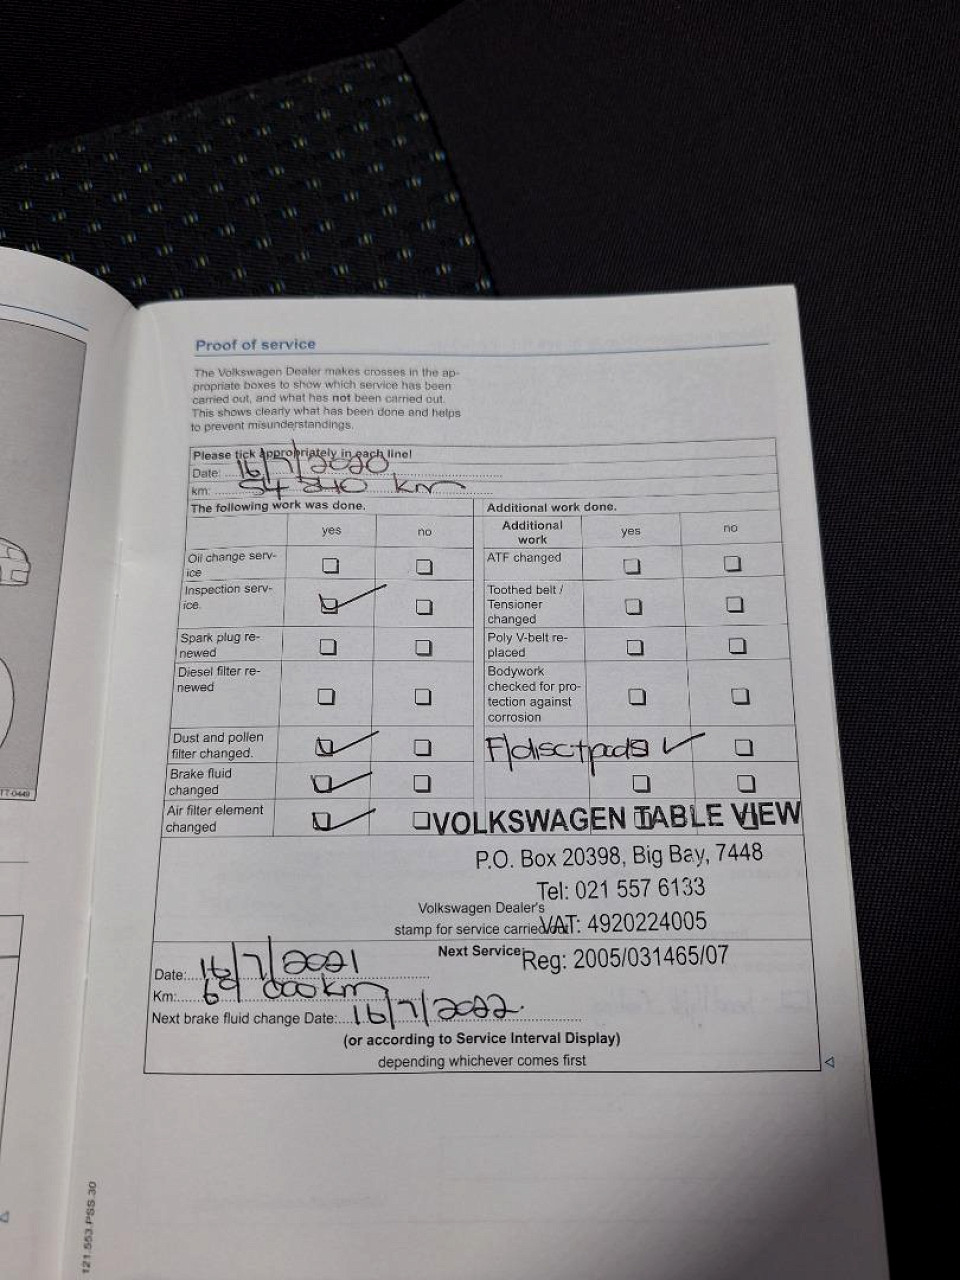 Proof of service
The Volkswagen Dealer makes crosses in the ap-
propriate boxes to show which service has been
carried out, and what has not been carried out.
This shows clearly what has been done and helps
to prevent misunderstandings.
Please tick appropriately in each line!
Date: 16/7/2020
km: 54 840 km
The following work was done.
Additional work done.
yes no
Additional work yes no
Oil change serv-
ice
ATF changed
Inspection serv-
ice.
Toothed belt /
Tensioner
changed
Spark plug re-
newed
Poly V-belt re-
placed
Diesel filter re-
newed
Bodywork
checked for pro-
tection against
corrosion
Dust and pollen
filter changed.
F/disc+pads
Brake fluid
changed
Air filter element
changed
VOLKSWAGEN TABLE VIEW
P.O. Box 20398, Big Bay, 7448
Tel: 021 557 6133
Volkswagen Dealer's
stamp for service carried out:
VAT: 4920224005
Next Service:
Reg: 2005/031465/07
Date: 16/7/2021
Km: 69 000km
Next brake fluid change Date: 16/7/2022.
(or according to Service Interval Display)
depending whichever comes first
121.553.PSS.30
TT-0449